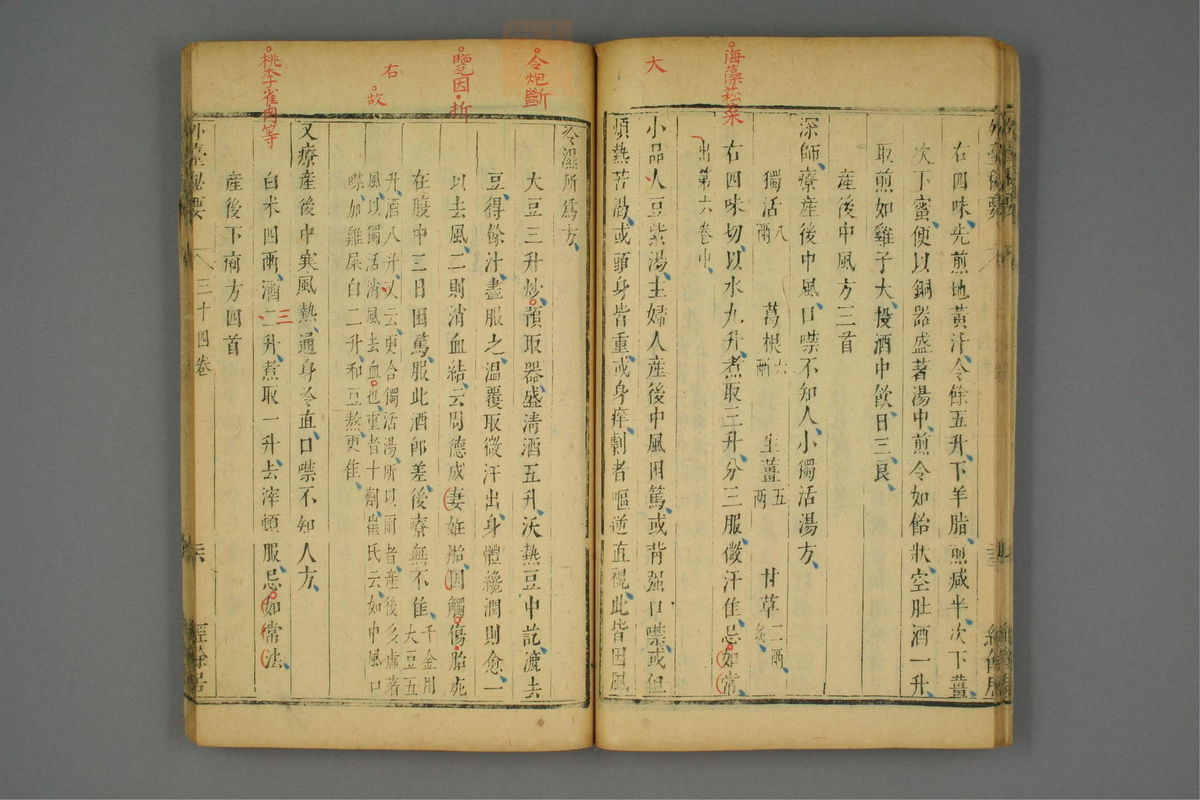 大
海藻菘菜
右四味先煎地黃汁令餘五升下羊脂煎減半次下薑
次下蜜便以銅器盛著湯中煎令如飴狀空肚酒一升
取煎如雞子大投酒中飲日三良
產後中風方三首
深師療產後中風口噤不知人小獨活湯方
獨活八兩 葛根六兩 生薑五兩 甘草二兩炙
右四味切以水九升煮取三升分三服微汗佳忌如常
出第六卷中
小品人豆紫湯主婦人產後中風困篤或背强口噤或但
煩熱苦渴或頭身皆重或身痒劇者嘔逆直視此皆因風
令炮斷
躄因折
右
故
桃李雀肉等
冷濕所爲方
大豆三升炒預取器盛清酒五升沃熱豆中訖漉去
豆得餘汁盡服之溫覆取微汗出身體纔潤則愈一
以去風二則消血結云周德成妻妊胎因觸傷胎死
在腹中三日困篤服此酒即差後療無不佳千金用大豆五
升酒八升又云更合獨活湯所以爾者產後多虛著
風以獨活消風去血也重者十劑崔氏云如中風口
噤加雞屎白二升和豆熬更佳
又療產後中寒風熱通身冷直口噤不知人方
白术四兩酒二升煮取一升去滓頓服忌如常法
三
產後下痢方四首
外臺秘要 三十四卷 經餘居